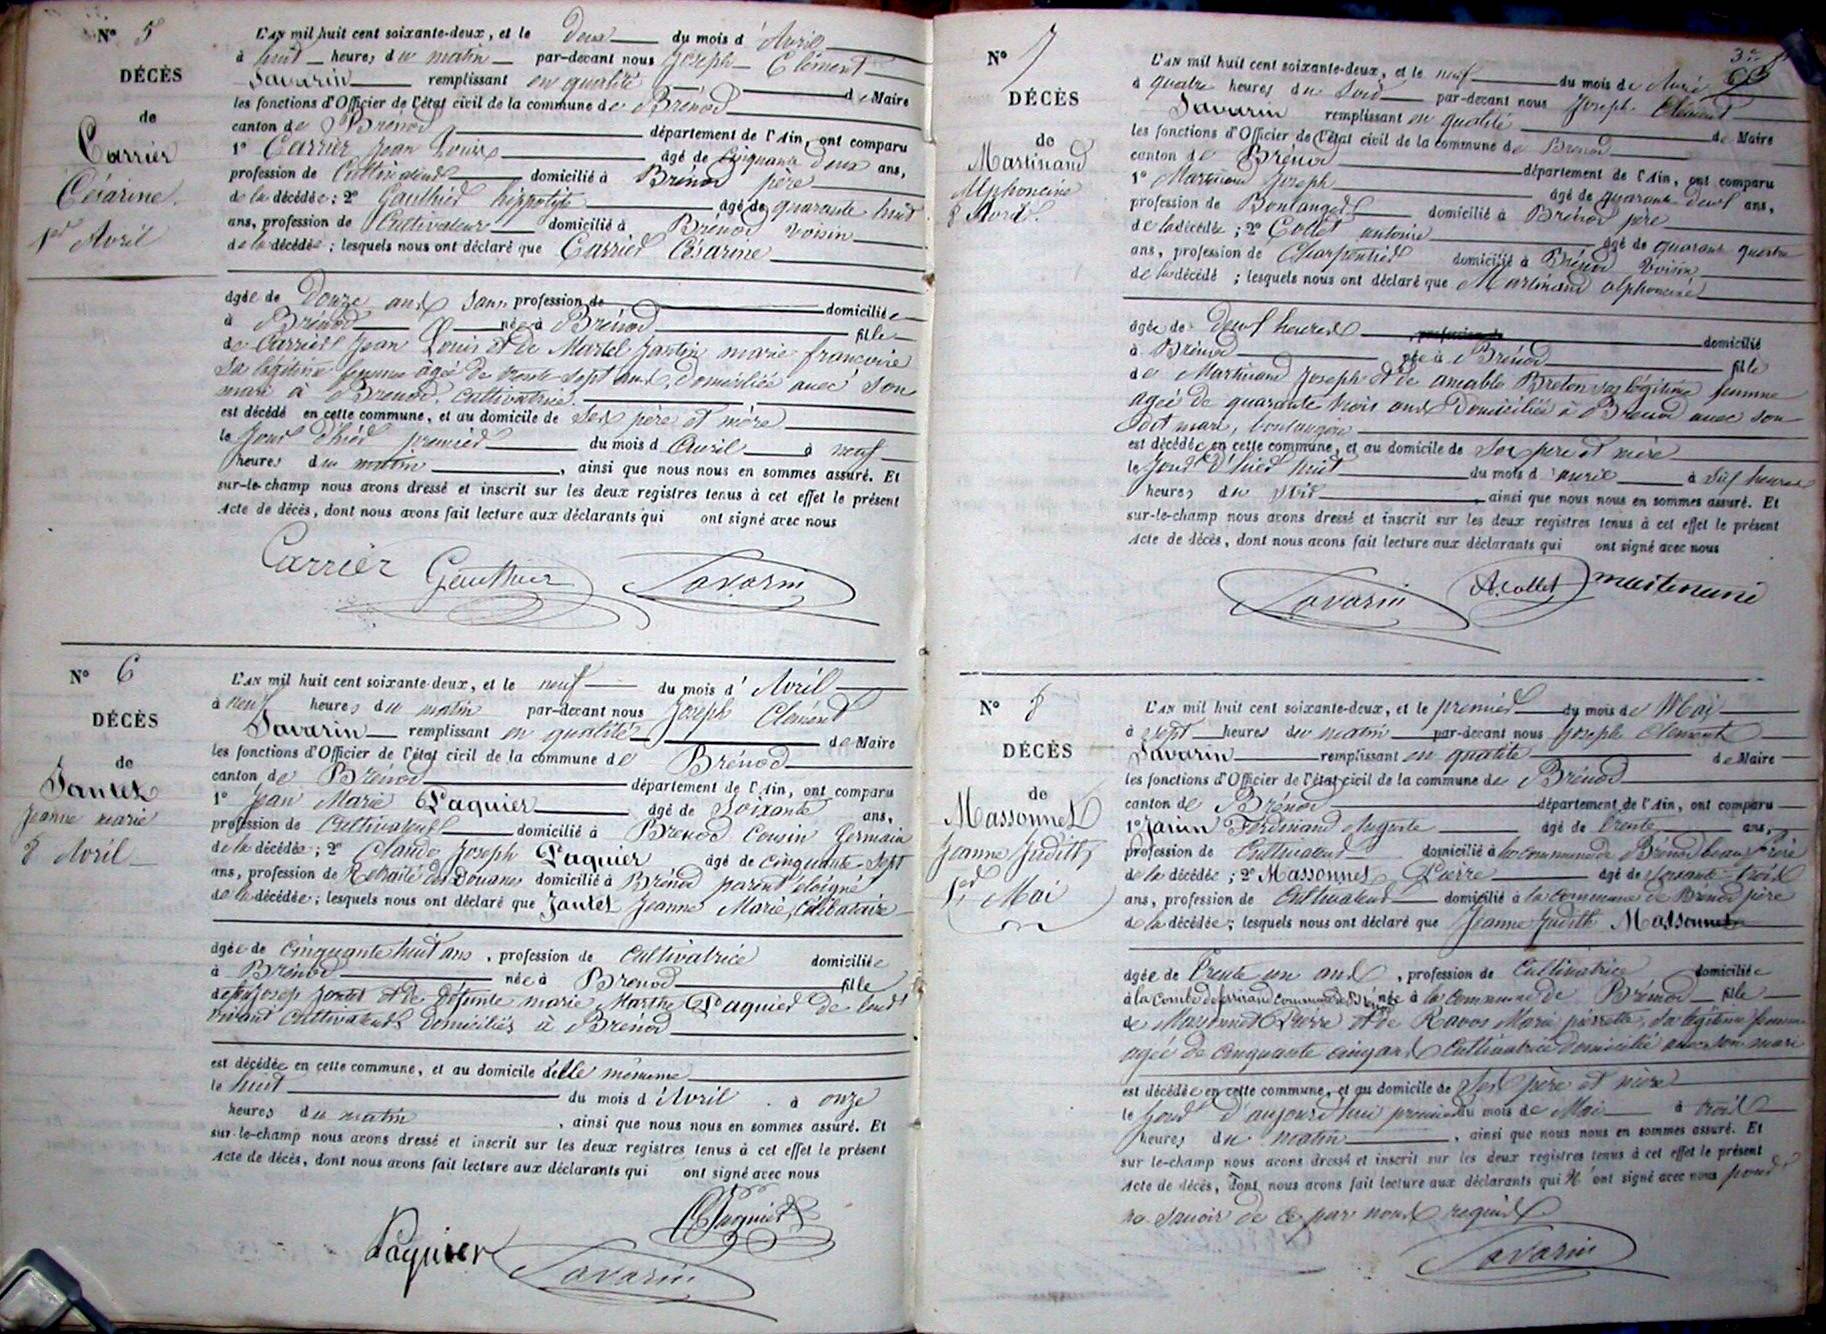 N° 5
DÉCÈS
de
Carrier
Césarine.
1er Avril
L'AN mil huit cent soixante-deux, et le deux du mois d'Avril
à huit heures du matin par-devant nous Joseph Clément
Savarin remplissant en qualité de Maire
les fonctions d'Officier de l'état civil de la commune de Brénod
canton de Brénod département de l'Ain, ont comparu
1° Carrier Jean Louis âgé de Cinquante deux ans,
profession de Cultivateur domicilié à Brénod père
de la décédée; 2° Gauthier hippolyte âgé de quarante huit
ans, profession de Cultivateur domicilié à Brénod voisin
de la décédée; lesquels nous ont déclaré que Carrier Césarine
âgée de Douze ans sans profession de domiciliée
à Brénod née à Brénod fille
de Carrier Jean Louis et de Martel Jantin marie françoise
sa légitime femme agée de trente-sept ans domiciliée avec son
mari à Brénod. cultivatrice.
est décédé en cette commune, et au domicile de ses père et mère
le jour d'hier premier du mois d'Avril à neuf
heures du matin, ainsi que nous nous en sommes assuré. Et
sur-le-champ nous avons dressé et inscrit sur les deux registres tenus à cet effet le présent
Acte de décès, dont nous avons fait lecture aux déclarants qui ont signé avec nous
Carrier Gauthier Savarin
N° 6
DÉCÈS
de
Jantet
Jeanne marie
8 Avril
L'AN mil huit cent soixante-deux, et le neuf du mois d'Avril
à neuf heures du matin par-devant nous Joseph Clément
Savarin remplissant en qualité de Maire
les fonctions d'Officier de l'état civil de la commune de Brénod
canton de Brénod département de l'Ain, ont comparu
1° Jean Marie Paquier âgé de Soixante ans,
profession de Cultivateur domicilié à Brénod Cousin Germain
de la décédée; 2° Claude Joseph Paquier âgé de cinquante-sept
ans, profession de Retraité des Douanes domicilié à Brénod parent éloigné
de la décédée; lesquels nous ont déclaré que Jantet Jeanne Marie, célibataire
âgée de cinquante huit ans, profession de Cultivatrice domiciliée
à Brénod née à Brénod fille
de feu Josep Jantet et de défunte marie Marthe Paquier de leur
vivant Cultivateurs domiciliés à Brénod
est décédée en cette commune, et au domicile d'elle même
le huit du mois d'Avril à onze
heures du matin, ainsi que nous nous en sommes assuré. Et
sur-le-champ nous avons dressé et inscrit sur les deux registres tenus à cet effet le présent
Acte de décès, dont nous avons fait lecture aux déclarants qui ont signé avec nous
Paquier Savarin
N° 7
DÉCÈS
de
Martinand
Alphoncine
8 Avril.
L'AN mil huit cent soixante-deux, et le neuf du mois de Avril
à quatre heures du Soir par-devant nous Joseph Clément
Savarin remplissant en qualité de Maire
les fonctions d'Officier de l'état civil de la commune de Brénod
canton de Brénod département de l'Ain, ont comparu
1° Martinand Joseph âgé de quarante deux ans,
profession de Boulanger domicilié à Brénod père
de la décédée; 2° Collet antoine âgé de quarante quatre
ans, profession de Charpentier domicilié à Brénod voisin
de la décédé; lesquels nous ont déclaré que Martinand alphoncine
âgée de deux heures profession de domicilié
à Brénod née à Brénod fille
de Martinand Joseph et de amable Breton sa légitime femme
agée de quarante trois ans domiciliée à Brénod avec son
dit mari, boulangère
est décédée en cette commune, et au domicile de ses père et mère
le jour d'hier huit du mois d'avril à dix heures
heures du soir ainsi que nous nous en sommes assuré. Et
sur-le-champ nous avons dressé et inscrit sur les deux registres tenus à cet effet le présent
Acte de décès, dont nous avons fait lecture aux déclarants qui ont signé avec nous
Savarin A. Collet
N° 8
DÉCÈS
de
Massonnet
Jeanne Judith
1er Mai
L'AN mil huit cent soixante-deux, et le premier du mois de Mai
à sept heures du matin par-devant nous Joseph Clément
Savarin remplissant en qualité de Maire
les fonctions d'Officier de l'état civil de la commune de Brénod
canton de Brénod département de l'Ain, ont comparu
1° Janin Ferdinand Auguste âgé de trente ans,
profession de Cultivateur domicilié à la commune de Brénod beau frère
de la décédée; 2° Massonnet Pierre âgé de soixante-trois
ans, profession de Cultivateur domicilié à la commune de Brénod père
de la décédée; lesquels nous ont déclaré que Jeanne Judith Massonnet
âgée de Trente un ans, profession de Cultivatrice domiciliée
à la Combe commune de Brénod née à la commune de Brénod fille
de Massonnet Pierre et de Ravos Marie pierrette, sa légitime femme
agée de cinquante cinq ans Cultivatrice domiciliée avec son mari
est décédée en cette commune, et au domicile de ses père et mère
le jour d'aujourd'hui premier du mois de Mai à trois
heures du matin, ainsi que nous nous en sommes assuré. Et
sur le-champ nous avons dressé et inscrit sur les deux registres tenus à cet effet le présent
Acte de décès, dont nous avons fait lecture aux déclarants qui n'ont signé avec nous pour
ne savoir de ce par nous requis
Savarin